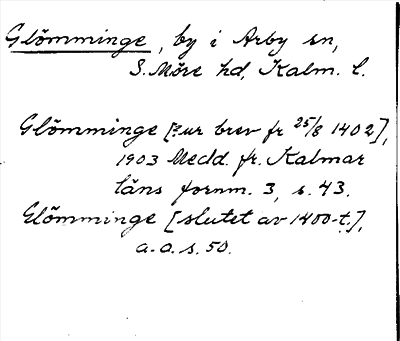 Glömminge, by i Arby sn,
S. Möre hd, Kalm. l.
Glömminge [ur brev fr 25/8 1402],
1903 Medd. fr. Kalmar
läns fornm. 3, s. 43.
Glömminge [slutet av 1400-t.],
a.a. s. 50.